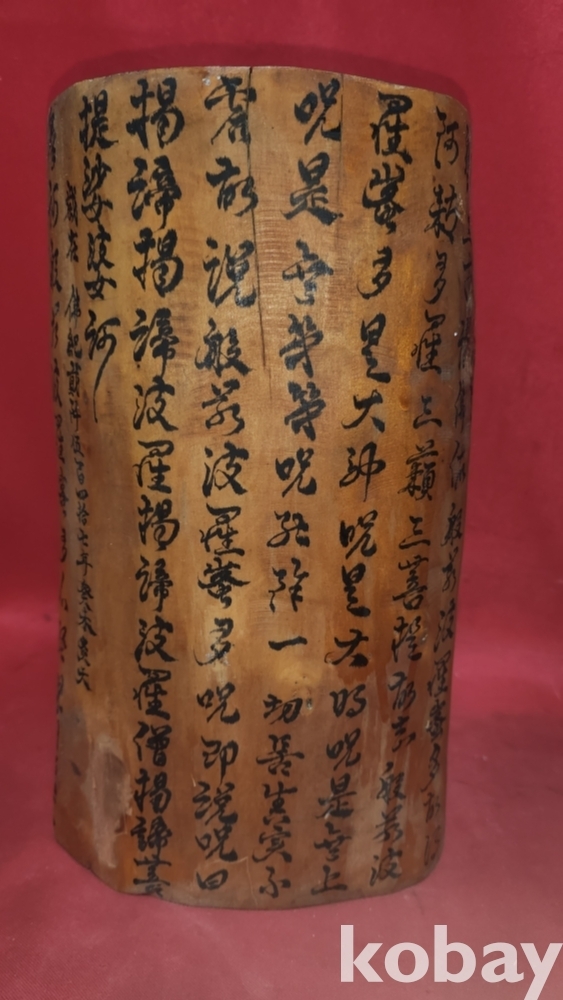 般若波羅蜜多故
阿耨多羅三藐三菩提故知般若波
羅蜜多是大神呪是大明呪是無上
呪是無等等呪能除一切苦真實不
虛故說般若波羅蜜多呪即說呪曰
揭諦揭諦波羅揭諦波羅僧揭諦菩
提娑婆訶
歲在 佛紀貳阡伍百四拾七年癸未
kobay